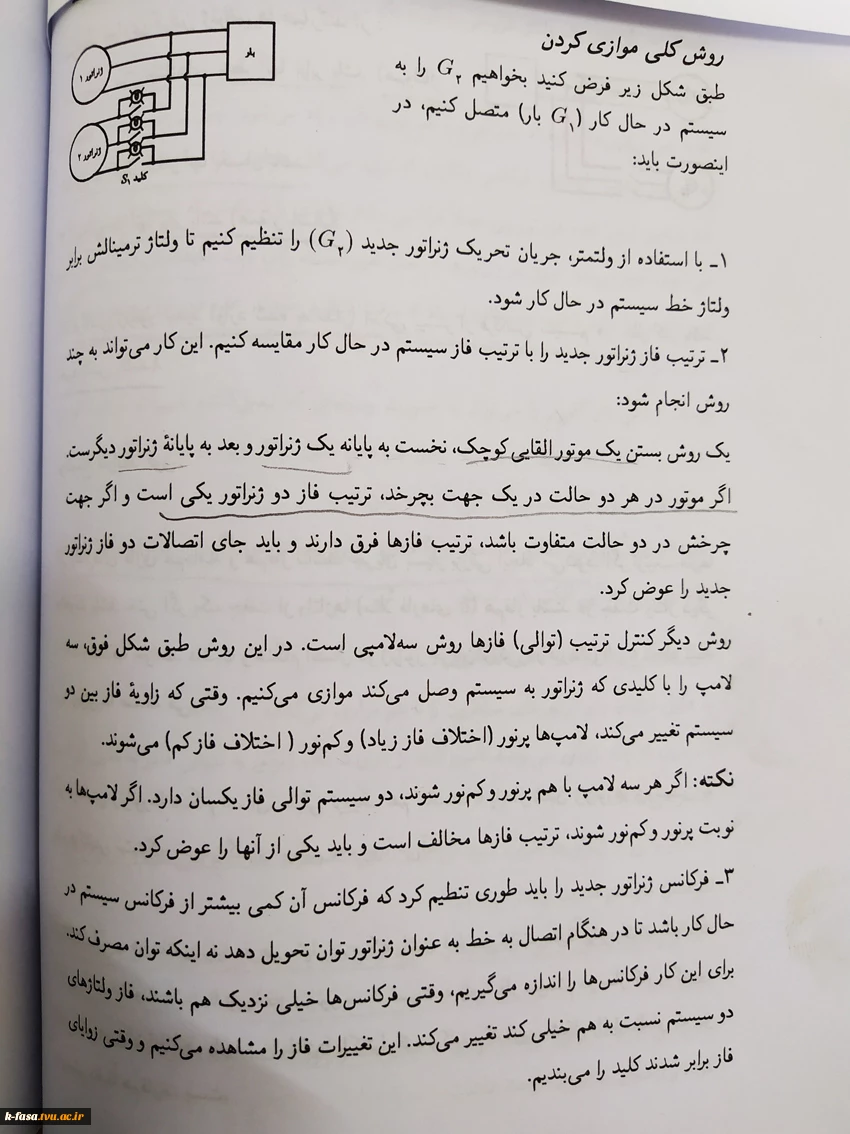 روش کلی موازی کردن
طبق شکل زیر فرض کنید بخواهیم G₂ را به
سیستم در حال کار (G₁ بار) متصل کنیم، در
اینصورت باید:
بار
ژنراتور ۱
ژنراتور ۲
کلید S₁
۱ـ با استفاده از ولتمتر، جریان تحریک ژنراتور جدید (G₂) را تنظیم کنیم تا ولتاژ ترمینالش برابر
ولتاژ خط سیستم در حال کار شود.
۲ـ ترتیب فاز ژنراتور جدید را با ترتیب فاز سیستم در حال کار مقایسه کنیم. این کار می‌تواند به چند
روش انجام شود:
یک روش بستن یک موتور القایی کوچک، نخست به پایانه یک ژنراتور و بعد به پایانهٔ ژنراتور دیگرست.
اگر موتور در هر دو حالت در یک جهت بچرخد، ترتیب فاز دو ژنراتور یکی است و اگر جهت
چرخش در دو حالت متفاوت باشد، ترتیب فازها فرق دارند و باید جای اتصالات دو فاز ژنراتور
جدید را عوض کرد.
روش دیگر کنترل ترتیب (توالی) فازها روش سه‌لامپی است. در این روش طبق شکل فوق، سه
لامپ را با کلیدی که ژنراتور به سیستم وصل می‌کند موازی می‌کنیم. وقتی که زاویهٔ فاز بین دو
سیستم تغییر می‌کند، لامپ‌ها پرنور (اختلاف فاز زیاد) و کم‌نور ( اختلاف فاز کم) می‌شوند.
نکته: اگر هر سه لامپ با هم پرنور و کم‌نور شوند، دو سیستم توالی فاز یکسان دارد. اگر لامپ‌ها به
نوبت پرنور و کم‌نور شوند، ترتیب فازها مخالف است و باید یکی از آنها را عوض کرد.
۳ـ فرکانس ژنراتور جدید را باید طوری تنطیم کرد که فرکانس آن کمی بیشتر از فرکانس سیستم در
حال کار باشد تا در هنگام اتصال به خط به عنوان ژنراتور توان تحویل دهد نه اینکه توان مصرف کند.
برای این کار فرکانس‌ها را اندازه می‌گیریم، وقتی فرکانس‌ها خیلی نزدیک هم باشند، فاز ولتاژهای
دو سیستم نسبت به هم خیلی کند تغییر می‌کند. این تغییرات فاز را مشاهده می‌کنیم و وقتی زوایای
فاز برابر شدند کلید را می‌بندیم.
k-fasa.tvu.ac.ir